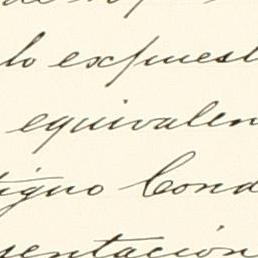 lo expuest
equivalen
tiguo Cond
sentación